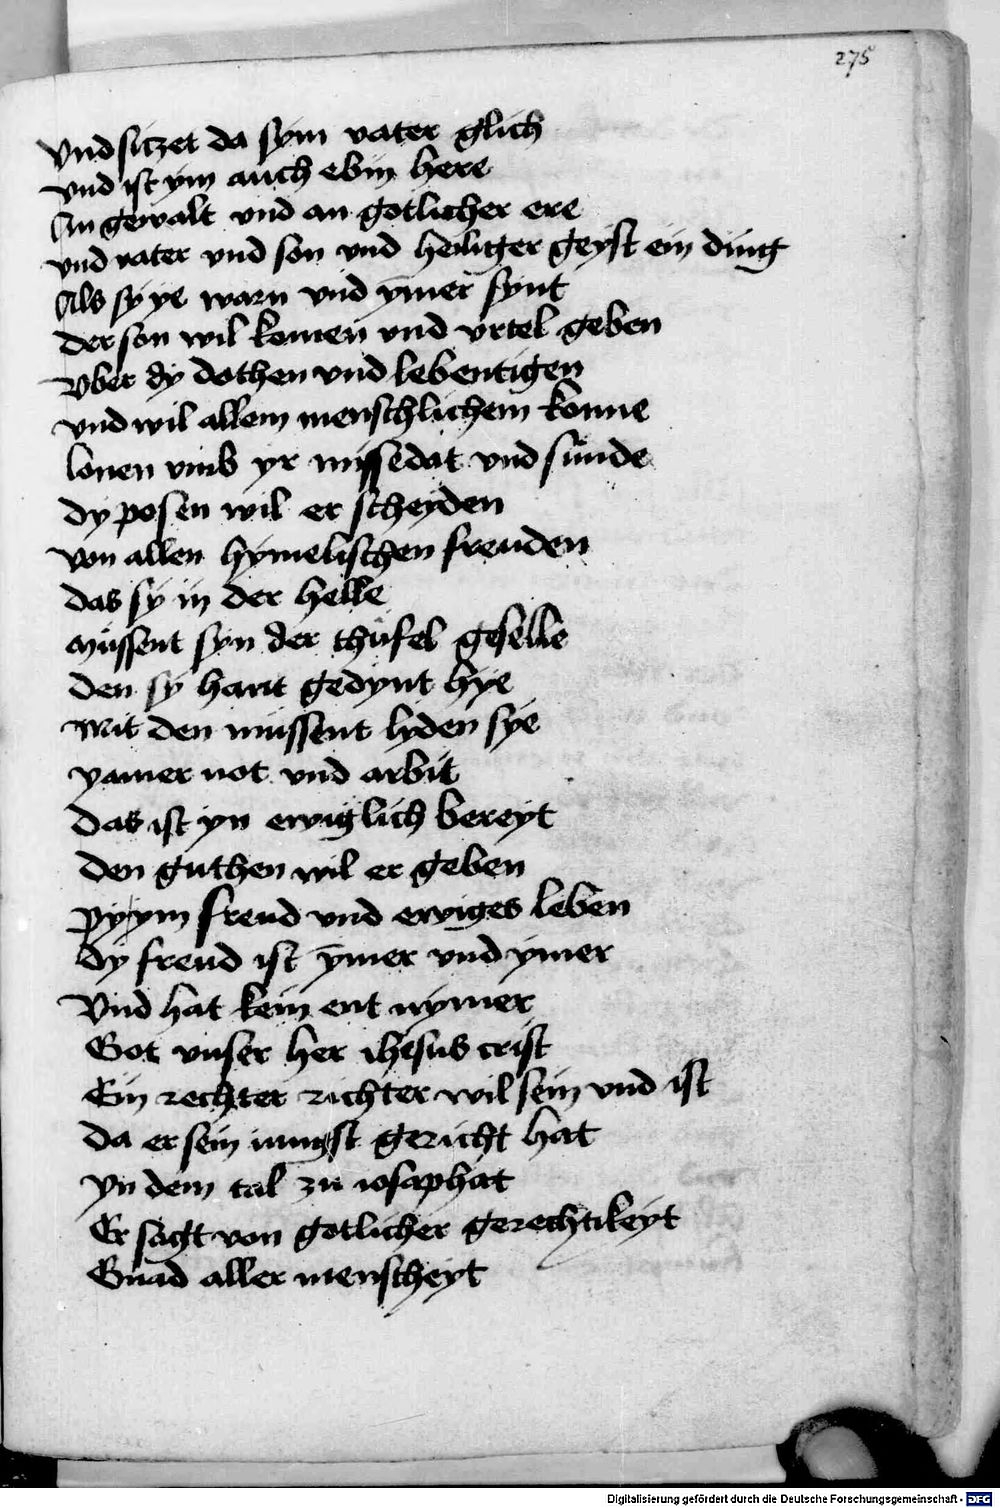 275
Vnd siczet da sym vater glich
vnd ist ym auch ebin here
An gewalt vnd an gotlicher ere
vnd vater vnd son vnd heiliger geyst ein ding
Als sy ye warn vnd ymer synt
der son wil komen vnd vrtel geben
Vber dy dothen vnd lebentigen
vnd wil allem menschlichem konne
lonen vmb yr missedat vnd sunde
dy posen wil er scheyden
von allen hymelischen freuden
das sy in der helle
mussent syn der thufel geselle
den sy hant gedynt hye
Mit den mussent lyden sye
yamer not vnd arbit
das ist yn ewiglich bereyt
den guthen wil er geben
py ym freud vnd ewiges leben
dy freud ist ymer vnd ymer
Vnd hat kein ent nymer
Got vnser her ihesus crist
Ein rechter richter wil sein vnd ist
da er sein iungst gericht hat
yn dem tal zu iosaphat
Er sagt von gotlicher gerechtikeyt
Gnad aller menscheyt
Digitalisierung gefördert durch die Deutsche Forschungsgemeinschaft - DFG